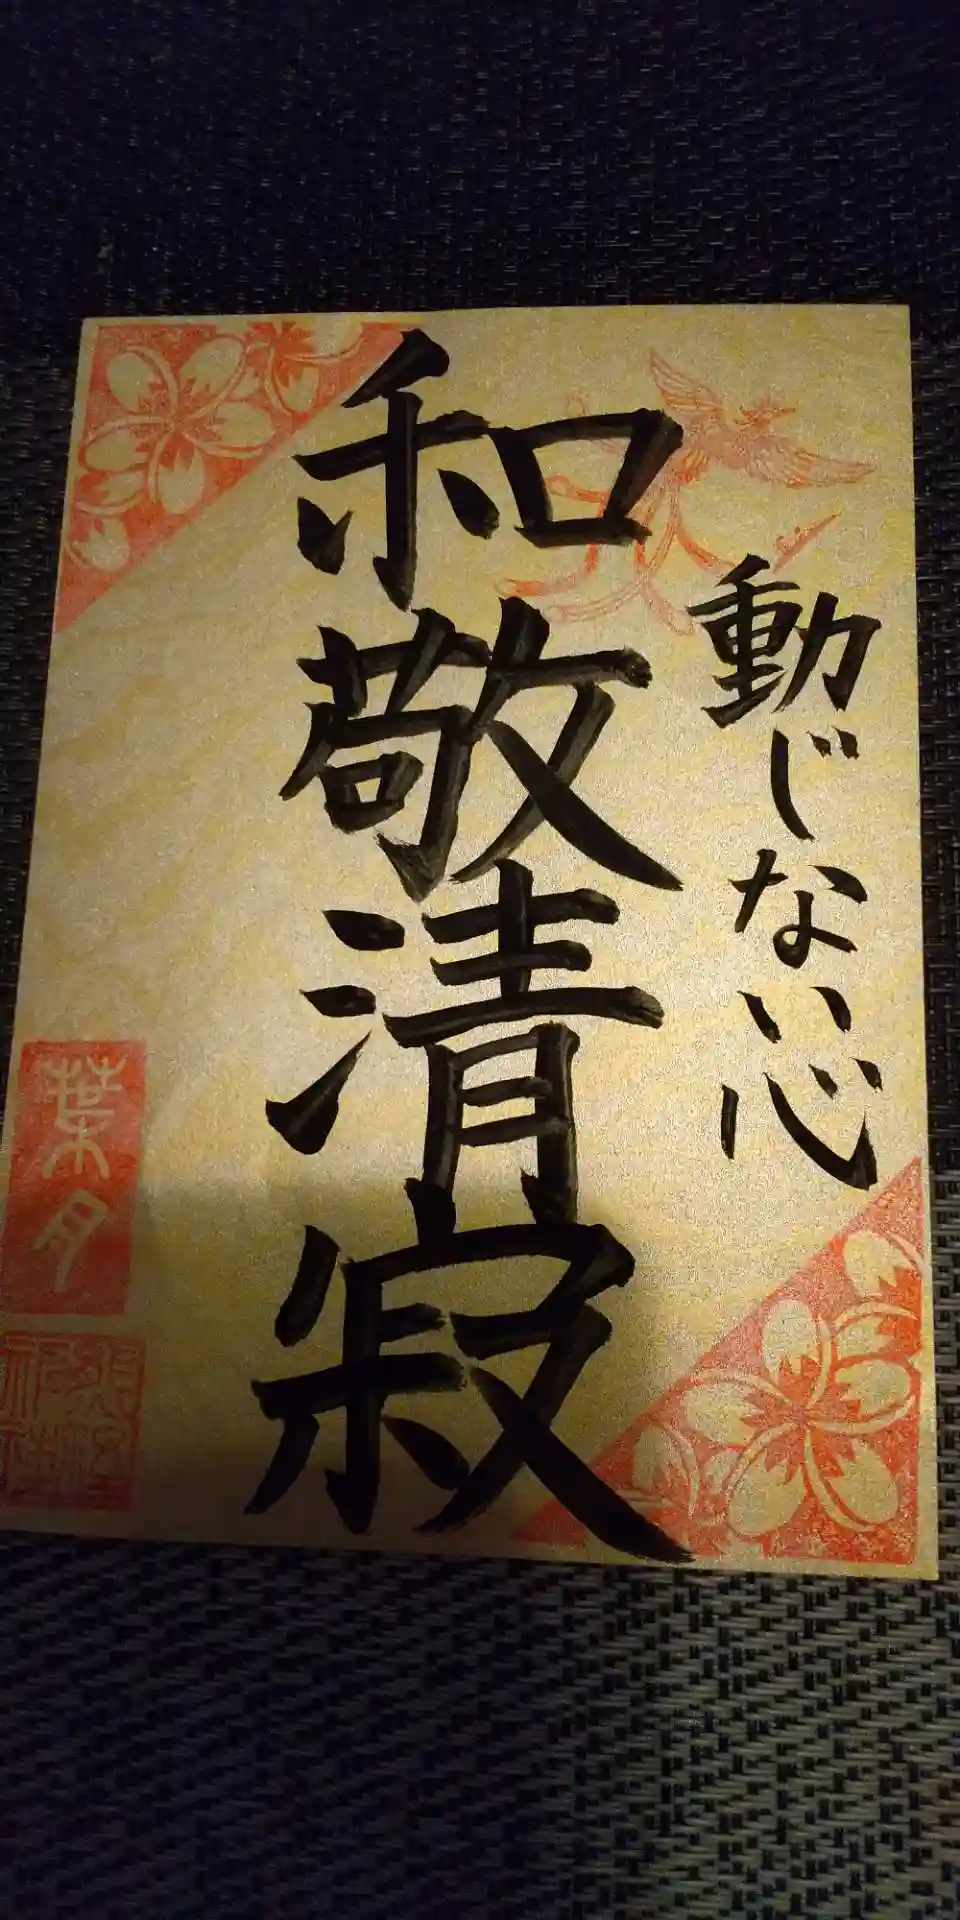 動じない心
和敬清寂
葉月